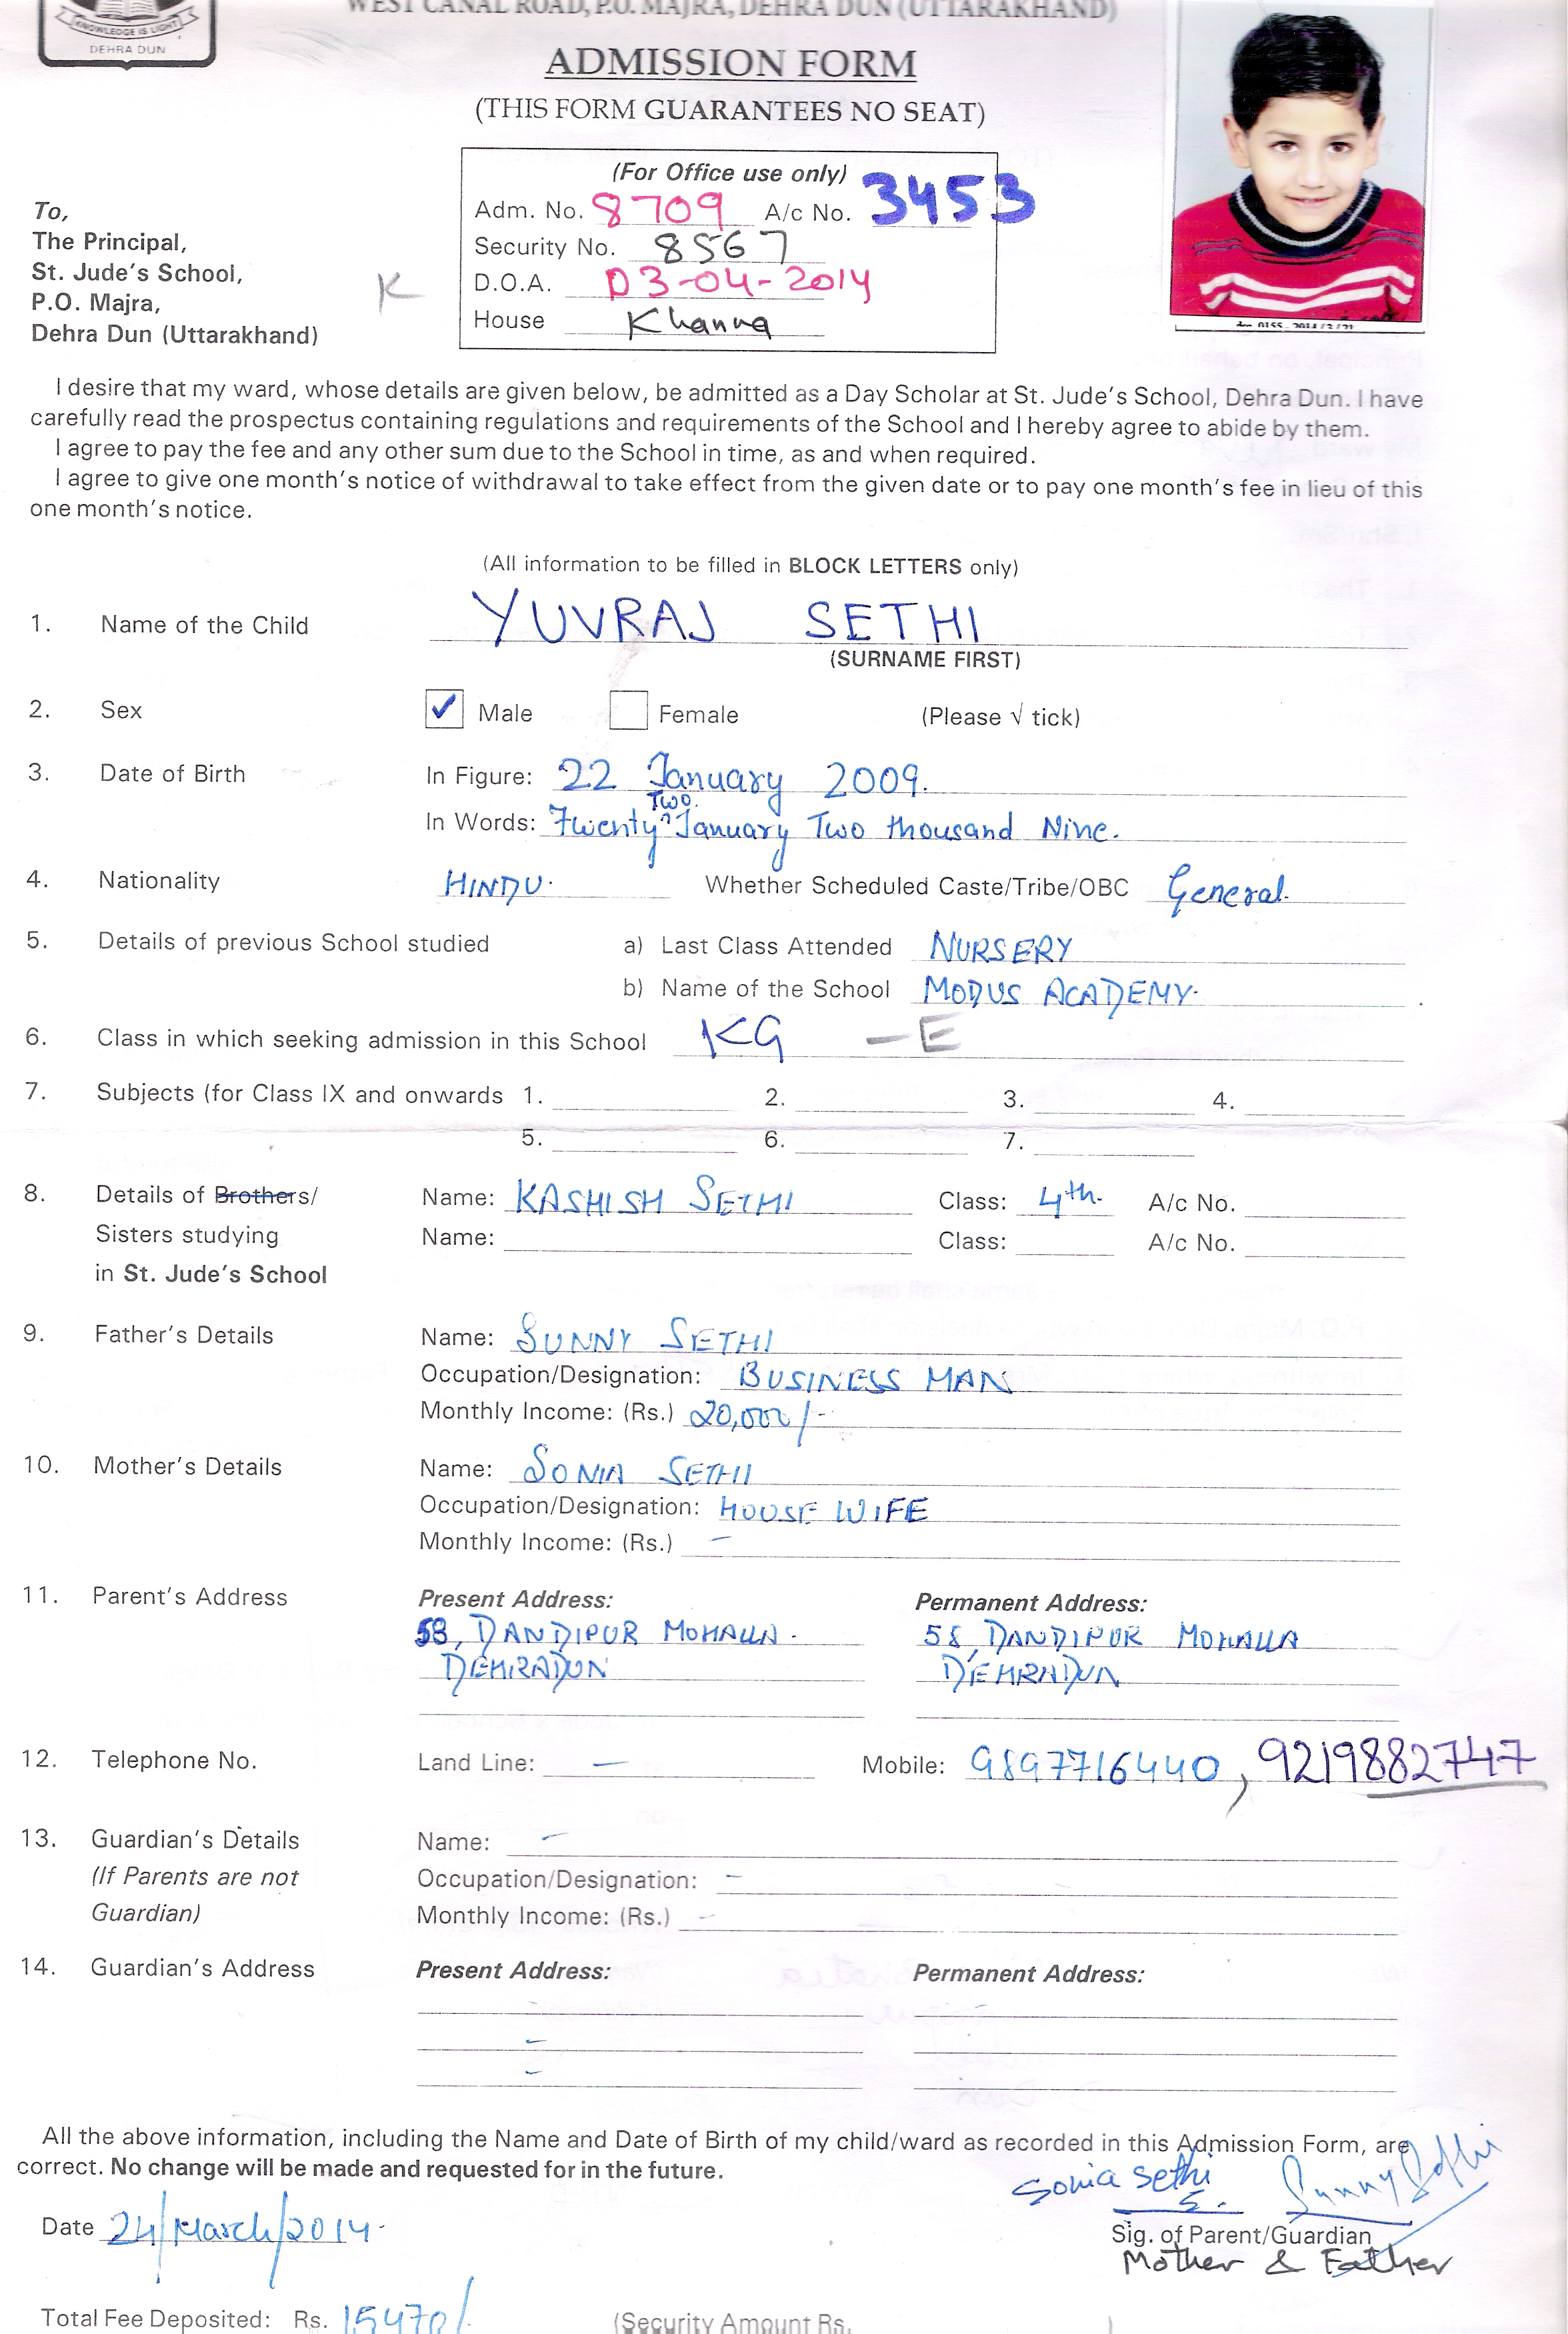 KNOWLEDGE IS LIGHT
DEHRA DUN
WEST CANAL ROAD, P.O. MAJRA, DEHRA DUN (UTTARAKHAND)
ADMISSION FORM
(THIS FORM GUARANTEES NO SEAT)
(For Office use only)
Adm. No. 8709 A/c No. 3453
Security No. 8567
D.O.A. 03-04-2014
House Khanna
To,
The Principal,
St. Jude's School,
P.O. Majra,
Dehra Dun (Uttarakhand)
K
I desire that my ward, whose details are given below, be admitted as a Day Scholar at St. Jude's School, Dehra Dun. I have
carefully read the prospectus containing regulations and requirements of the School and I hereby agree to abide by them.
I agree to pay the fee and any other sum due to the School in time, as and when required.
I agree to give one month's notice of withdrawal to take effect from the given date or to pay one month's fee in lieu of this
one month's notice.
(All information to be filled in BLOCK LETTERS only)
1. Name of the Child YUVRAJ SETHI
(SURNAME FIRST)
2. Sex ✓ Male Female (Please √ tick)
3. Date of Birth In Figure: 22 January 2009.
In Words: Twenty Two. January Two thousand Nine.
4. Nationality HINDU. Whether Scheduled Caste/Tribe/OBC General.
5. Details of previous School studied a) Last Class Attended NURSERY
b) Name of the School MODUS ACADEMY.
6. Class in which seeking admission in this School KG - E
7. Subjects (for Class IX and onwards 1. 2. 3. 4.
5. 6. 7.
8. Details of Brothers/ Name: KASHISH SETHI Class: 4th. A/c No.
Sisters studying Name: Class: A/c No.
in St. Jude's School
9. Father's Details Name: SUNNY SETHI
Occupation/Designation: BUSINESS MAN
Monthly Income: (Rs.) 20,000/-
10. Mother's Details Name: SONIA SETHI
Occupation/Designation: HOUSE WIFE
Monthly Income: (Rs.) -
11. Parent's Address Present Address: Permanent Address:
58, DANDIPUR MOHALLA. 58, DANDIPUR MOHALLA
DEHRADUN DEHRADUN
12. Telephone No. Land Line: - Mobile: 9897716440, 9219882747
13. Guardian's Details Name: -
(If Parents are not Occupation/Designation: -
Guardian) Monthly Income: (Rs.) -
14. Guardian's Address Present Address: Permanent Address:
-
-
-
All the above information, including the Name and Date of Birth of my child/ward as recorded in this Admission Form, are
correct. No change will be made and requested for in the future.
Sonia Sethi Sunny Sethi
Date 24/March/2014. Sig. of Parent/Guardian
Mother & Father
Total Fee Deposited: Rs. 15470/ (Security Amount Rs. )